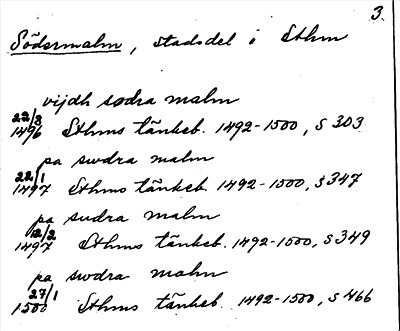 3.
Södermalm, stadsdel i Sthm
vijdh sødra malm
22/3 1496 Sthms tänkeb. 1492-1500, s 303
pa swdra malm
22/1 1497 Sthms tänkeb. 1492-1500, s 347
pa sudra malm
12/2 1497 Sthms tänkeb. 1492-1500, s 349
pa swdra malm
27/1 1500 Sthms tänkeb. 1492-1500, s 466